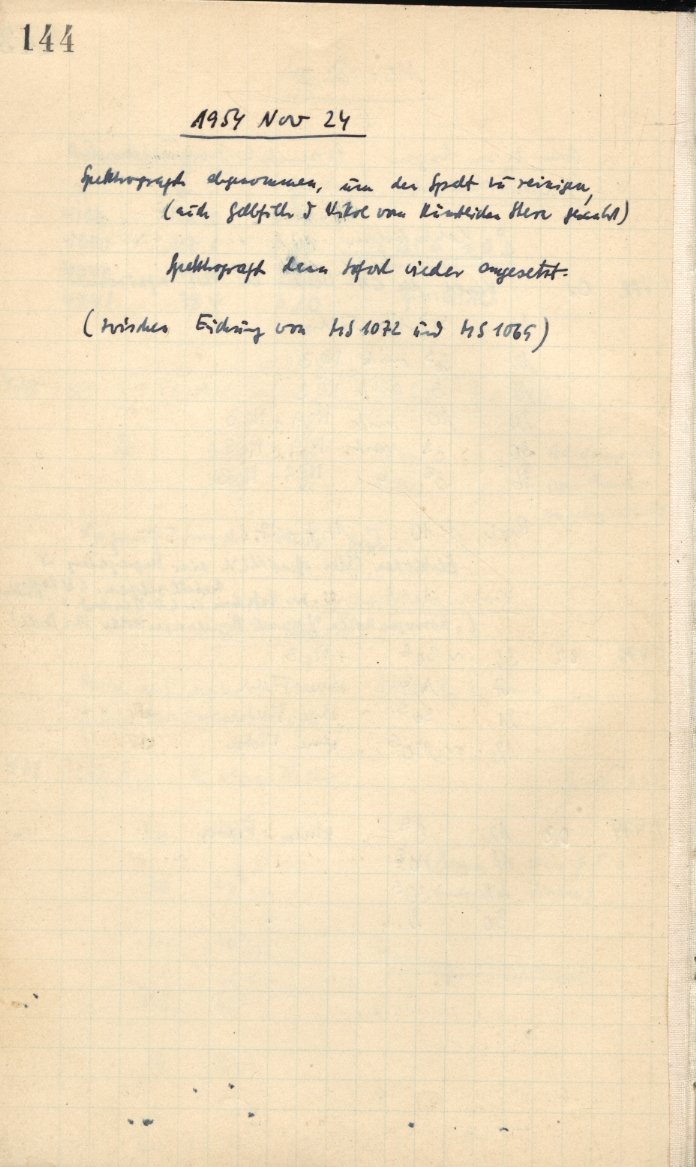 144
1954 Nov 24
Spektrograph abgenommen, um den Spalt zu reinigen,
(auch Gelbfilter & Nikol vom Künstlichen Stern gesäubert)
Spektrograph dann sofort wieder angesetzt.
(zwischen Eichung von MS 1072 und MS 1065)